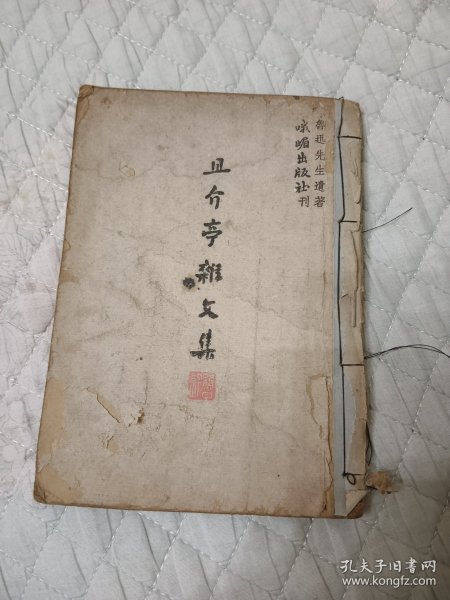 魯迅先生遺著
峨嵋出版社刊
且介亭雜文集
孔夫子旧书网
www.kongfz.com